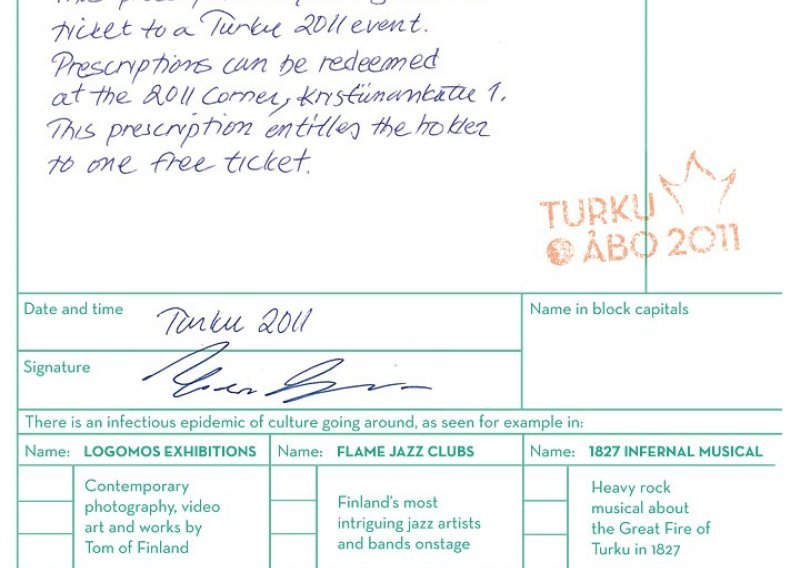 ticket to a Turku 2011 event.
Prescriptions can be redeemed
at the 2011 Corner, Kristiinankatu 1.
This prescription entitles the holder
to one free ticket.
TURKU
ÅBO 2011
Date and time
Turku 2011
Name in block capitals
Signature
There is an infectious epidemic of culture going around, as seen for example in:
Name: LOGOMOS EXHIBITIONS
Contemporary
photography, video
art and works by
Tom of Finland
Name: FLAME JAZZ CLUBS
Finland's most
intriguing jazz artists
and bands onstage
Name: 1827 INFERNAL MUSICAL
Heavy rock
musical about
the Great Fire of
Turku in 1827